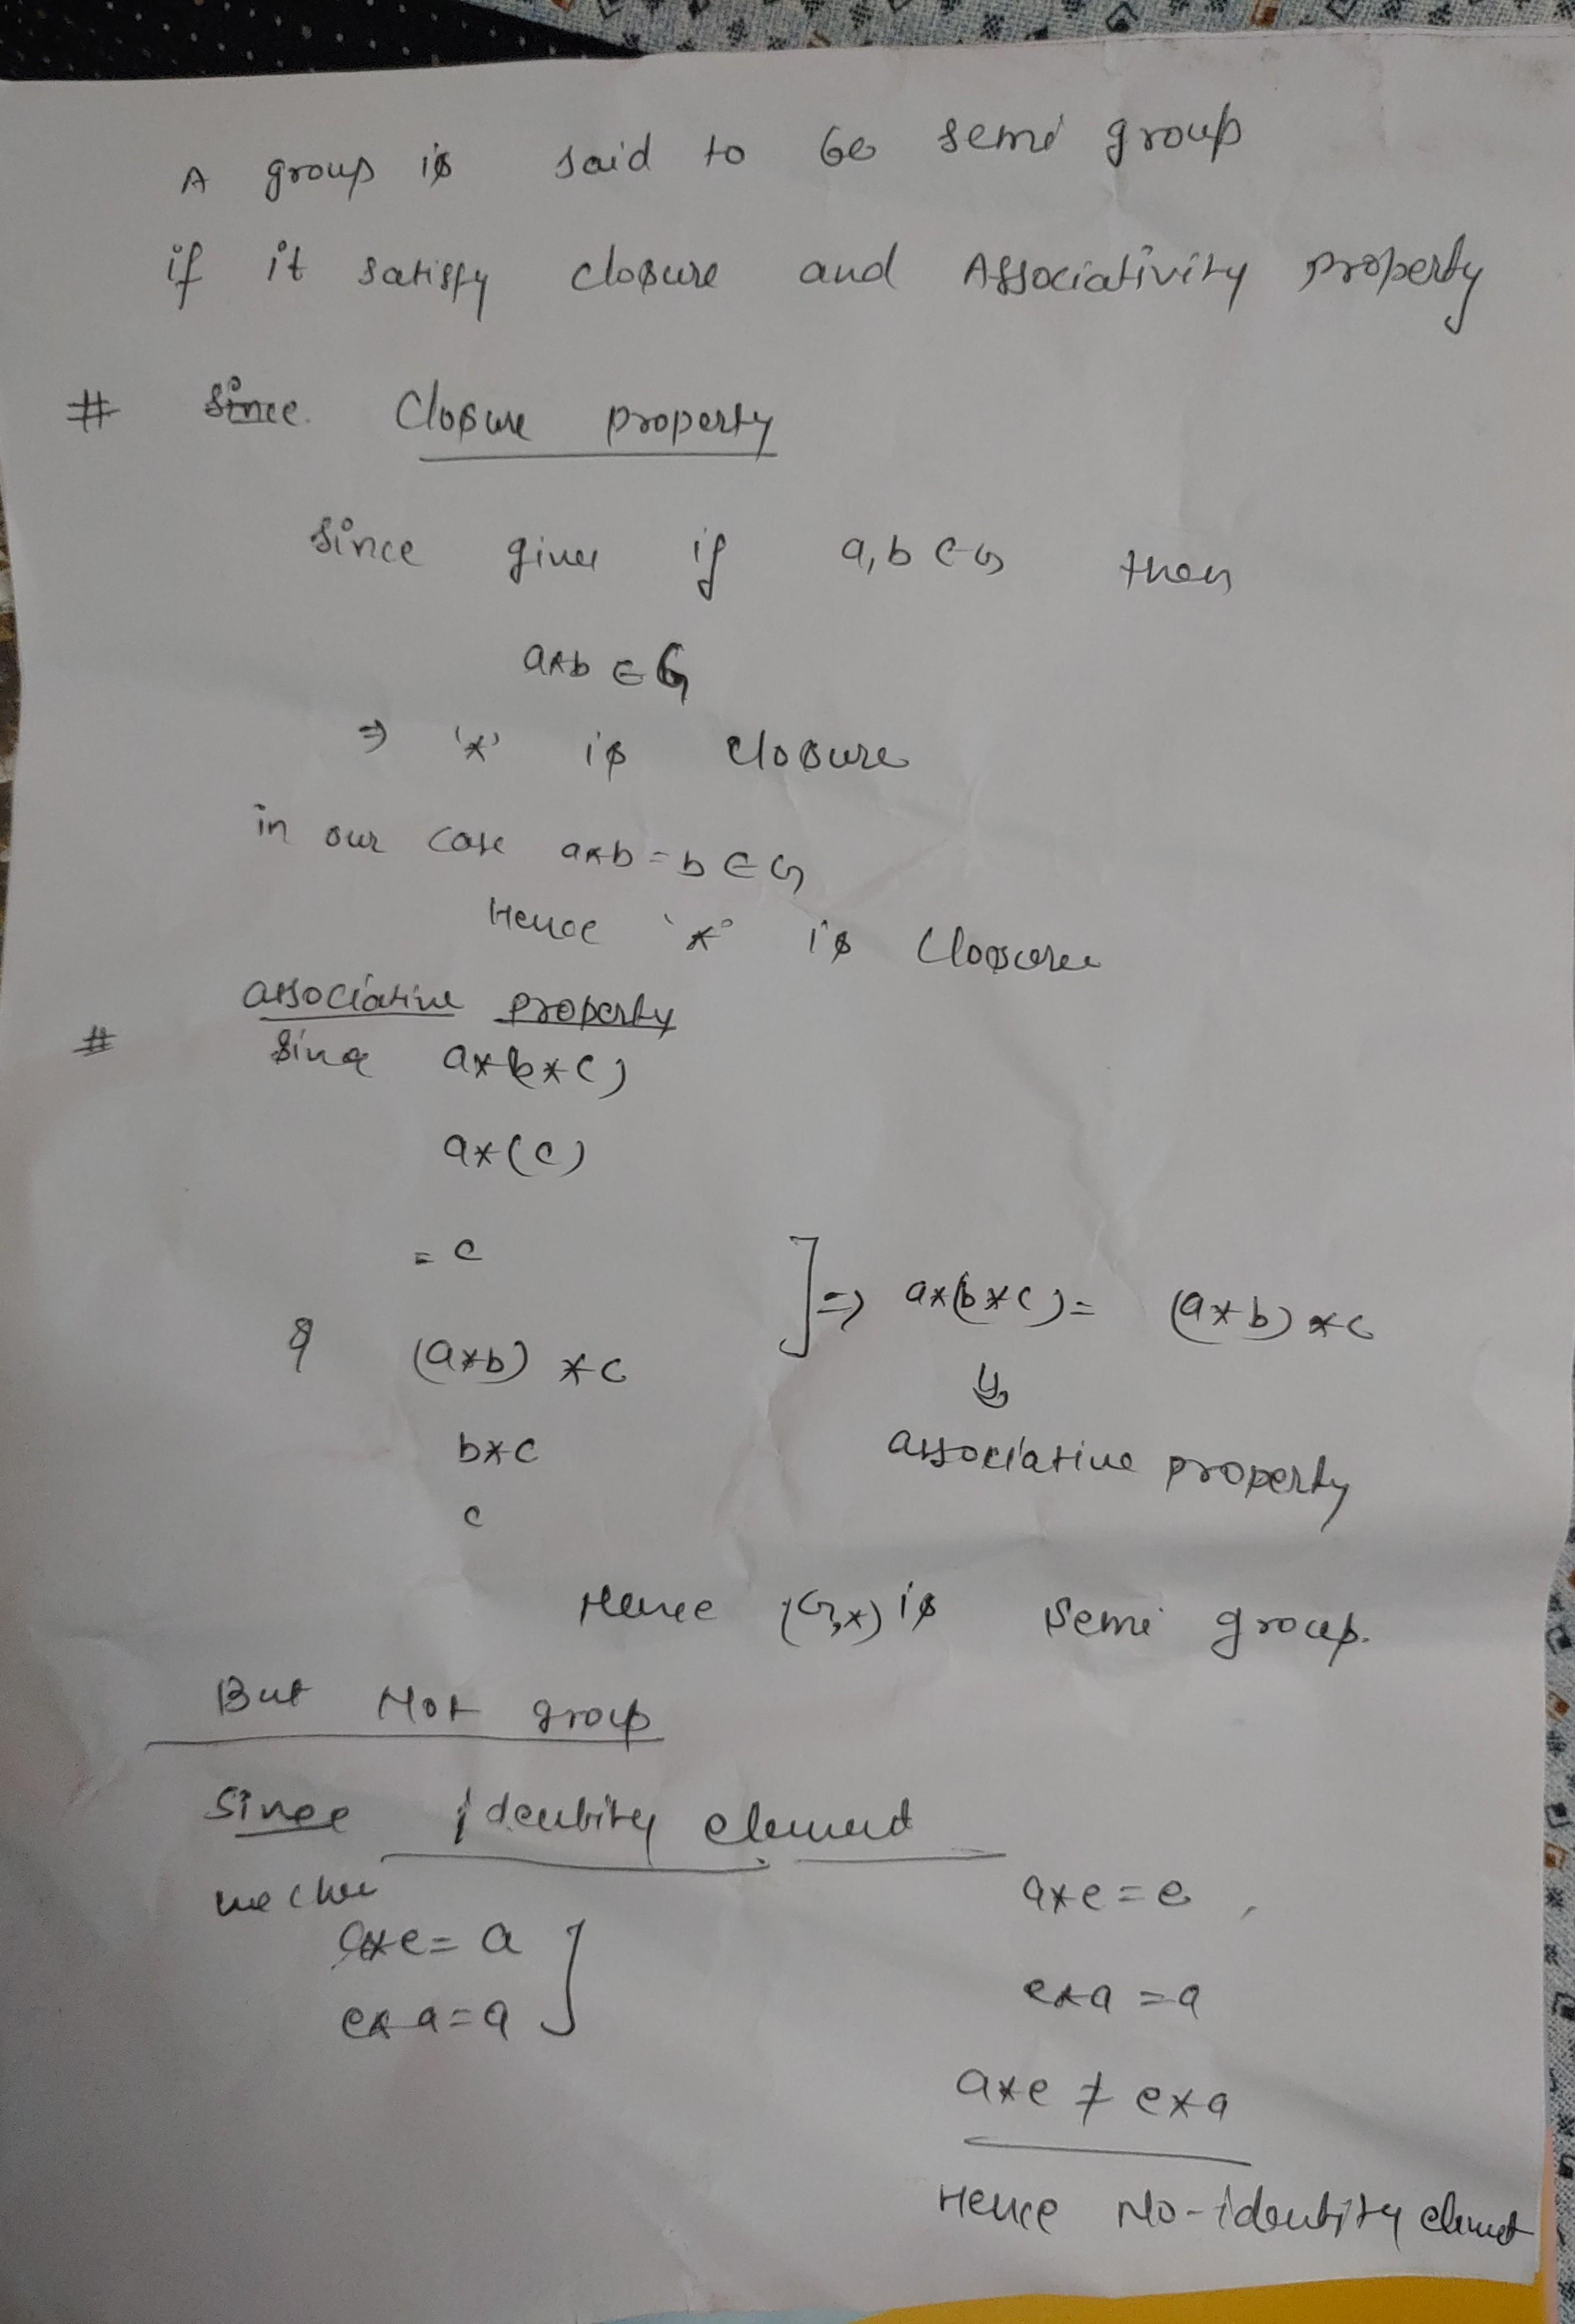 A group is said to be semi group
if it satisfy closure and Associativity property
# Since. Closure property
Since given if a,b ∈ G then
a*b ∈ G
⇒ '*' is closure
in our case a*b = b ∈ G
Hence '*' is Closure
associative property
# Since a*(b*c)
a*(c)
= c
& (a*b) *c
] ⇒ a*(b*c) = (a*b) *c
b*c
c
associative property
Hence (G,*) is semi group.
But Not group
Since identity element
a*e = a ]
e*a = a
a*e = e ,
e*a = a
a*e ≠ e*a
Hence No-identity element